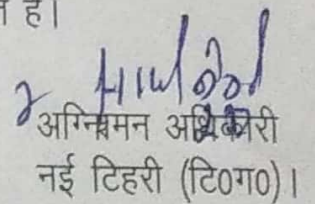 है।
अग्निशमन अधिकारी
नई टिहरी (टि0ग0)।